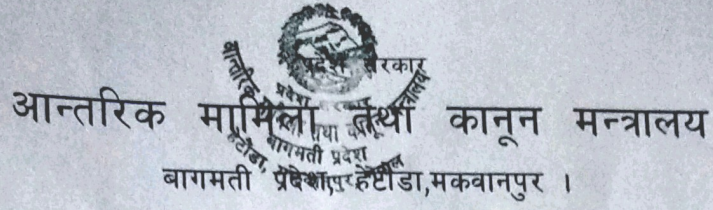 प्रदेश सरकार
आन्तरिक मामिला तथा कानून मन्त्रालय
बागमती प्रदेश, हेटौंडा,मकवानपुर ।